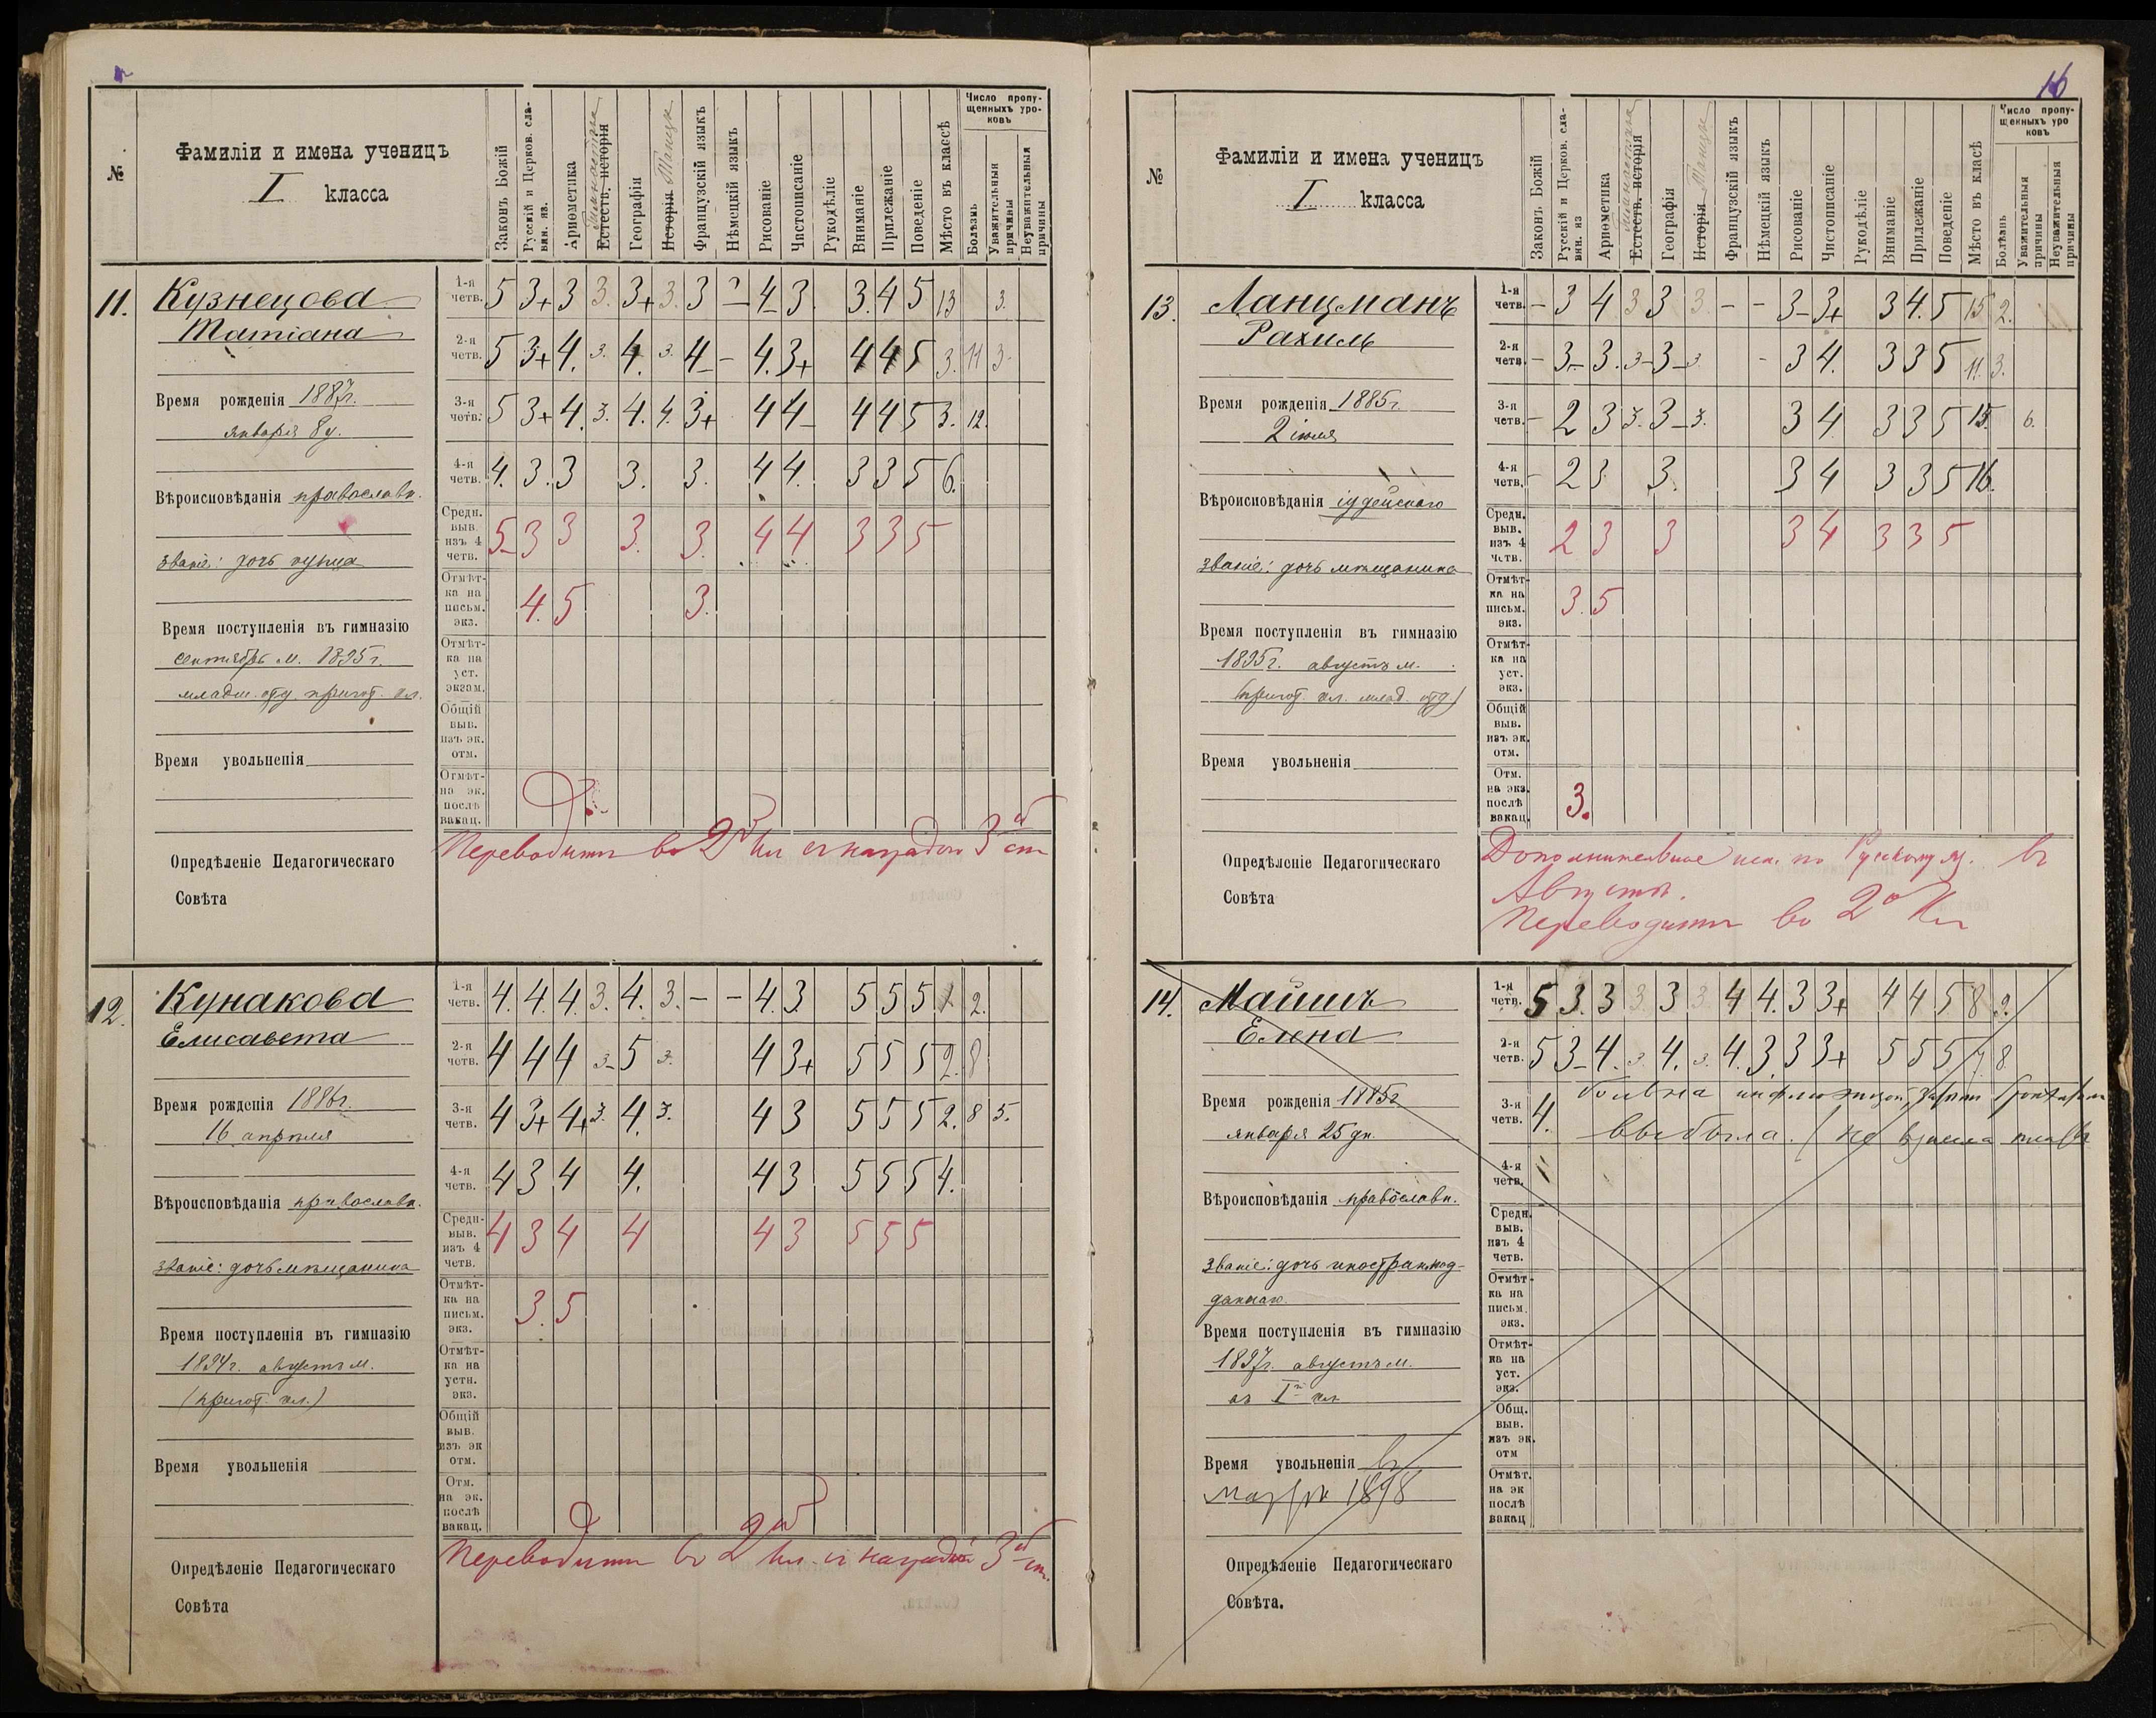 №
Фамиліи и имена ученицъ
I класса
Законъ Божій
Русскій и Церков. сла-
вян. яз.
Ариѳметика
Гимнастика
Естеств. исторія
Географія
Танцы
Исторія
Французскій языкъ
Нѣмецкій языкъ
Рисованіе
Чистописаніе
Рукодѣліе
Вниманіе
Прилежаніе
Поведеніе
Мѣсто въ классѣ
Число пропу-
щенныхъ уро-
ковъ
Болѣзнь
Уважительныя
причины
Неуважительныя
причины
11.
Кузнецова
Татіана
Время рожденія 1887г.
января 8 ч.
Вѣроисповѣданія православн.
званіе: дочь купца
Время поступленія въ гимназію
сентябрь м. 1895 г.
младш. отд. пригот. кл.
Время увольненія
1-я четв. 5 3+ 3 3. 3+ 3. 3 – 4 3. 3. 4 5 13 3.
2-я четв. 5 3+ 4. 3. 4. 3. 4– – 4. 3+ 4 4 5 3. 11 3.
3-я четв. 5 3+ 4. 3. 4. 4. 3+ 4 4– 4 4 5 3. 12.
4-я четв. 4. 3. 3 3. 3. 4 4. 3 3 5 6.
Средн. выв. изъ 4 четв. 5– 3 3 3. 3. 4 4 3 3 5
Отмѣт-ка на письм. экз. 4. 5 3.
Отмѣт-ка на уст. экзам.
Общій выв. изъ эк. отм.
Отмѣт-на эк. послѣ вакац.
Опредѣленіе Педагогическаго
Совѣта
Переводить во 2й кл съ наградой 3ей ст
12.
Кунакова
Елисавета
Время рожденія 1886г.
16 апрѣля
Вѣроисповѣданія православн.
званіе: дочь мѣщанина
Время поступленія въ гимназію
1894г. августъ м.
(пригот. кл.)
Время увольненія
1-я четв. 4. 4. 4. 3. 4. 3. – – 4. 3. 5 5 5 1 2.
2-я четв. 4 4 4 3– 5 3. 4 3+ 5 5 5 2. 8
3-я четв. 4 3+ 4+ 3. 4. 3. 4 3 5 5 5 2. 8 5.
4-я четв. 4 3 4 4. 4 3 5 5 5 4.
Средн-выв. изъ 4 четв. 4 3 4 4 4 3 5 5 5
Отмѣт-ка на письм. экз. 3. 5
Отмѣт-ка на устн. экз.
Общій выв. изъ эк отм.
Отм. на эк. послѣ вакац.
Опредѣленіе Педагогическаго
Совѣта
Переводить во 2й кл. съ наградой 3ей ст.
16
№
Фамиліи и имена ученицъ
I класса
Законъ Божій
Русскій и Церков. сла-
вян. яз
Ариѳметика
Гимнастика
Естеств. исторія
Географія
Танцы
Исторія
Французскій языкъ
Нѣмецкій языкъ
Рисованіе
Чистописаніе
Рукодѣліе
Вниманіе
Прилежаніе
Поведеніе
Мѣсто въ класѣ
Число пропу-
щенныхъ уро
ковъ
Болѣзнь
Уважительныя
причины
Неуважительныя
причины
13.
Ланцманъ
Рахиль
Время рожденія 1885г.
2 іюля
Вѣроисповѣданія іудейскаго
званіе: дочь мѣщанина
Время поступленія въ гимназію
1895г. августъ м.
(пригот. кл. млад. отд.)
Время увольненія
1-я четв. – 3 4 3 3 3. – – 3– 3+ 3 4. 5 15 2.
2-я четв. – 3– 3. 3– 3– 3. – 3 4. 3 3 5 11. 3.
3-я четв. – 2 3 3. 3– 3. 3 4 3 3 5 15. 6.
4-я четв. – 2 3. 3. 3 4 3 3 5 16.
Средн. выв. изъ 4 четв. 2 3 3 3 4 3 3 5
Отмѣт-ка на письм. экз. 3. 5
Отмѣт-ка на уст. экз.
Общій выв. изъ эк. отм.
Отм. на экз. послѣ вакац. 3.
Опредѣленіе Педагогическаго
Совѣта
Дополнительное исп. по Русскому яз. въ
Августѣ.
Переводить во 2й Кл
14.
Майшъ
Елена
Время рожденія 1885г
января 25 дн.
Вѣроисповѣданія православн.
званіе: дочь иностран. под-
даннаго.
Время поступленія въ гимназію
1897г. августъ м.
въ Iй кл.
Время увольненія въ
мартѣ 1898
1-я четв. 5 3. 3 3. 3 3. 4 4. 3 3+ 4 4 5 8 2.
2-я четв. 5 3– 4. 3. 4. 3. 4. 3. 3 3+ 5 5 5 7 8.
3-я четв. 4. больна инфлюэнцой,
выбыла. (не взнесла платы
4-я четв.
Средн. выв. изъ 4 четв.
Отмѣт-ка на письм. экз.
Отмѣт-ка на уст. экз.
Общ. выв. изъ эк. отм
Отмѣт. на эк послѣ вакац
Опредѣленіе Педагогическаго
Совѣта.